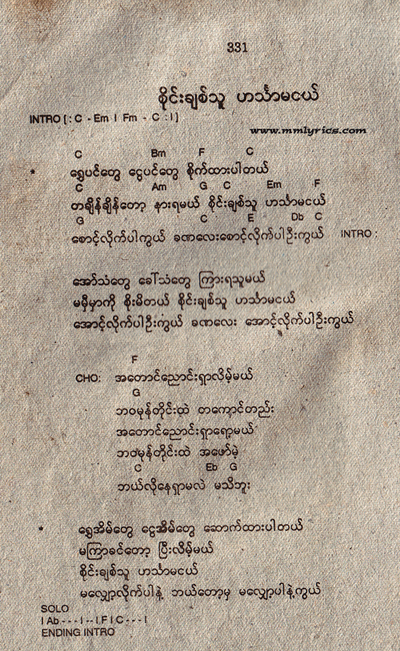 331
စိုင်းချစ်သူ ဟင်္သာမငယ်
INTRO [: C - Em I Fm - C : I ]
www.mmlyrics.com
C Bm F C
* ရွှေပင်တွေ ငွေပင်တွေ စိုက်ထားပါတယ်
C Am G C Em F
တချိန်ချိန်တော့ နားရမယ် စိုင်းချစ်သူ ဟင်္သာမငယ်
G C E Db C
စောင့်လိုက်ပါကွယ် ခဏလေးစောင့်လိုက်ပါဦးကွယ် INTRO :
အော်သံတွေ ခေါ်သံတွေ ကြားရသူမယ်
မမှီမှာကို စိုးမိတယ် စိုင်းချစ်သူ ဟင်္သာမငယ်
အောင့်လိုက်ပါဦးကွယ် ခဏလေး အောင့်လိုက်ပါဦးကွယ်
F
CHO: အတောင်ညောင်းရှာလိမ့်မယ်
G
ဘဝမုန်တိုင်းထဲ တကောင်တည်း
အတောင်ညောင်းရှာရော့မယ်
ဘဝမုန်တိုင်းထဲ အဖော်မဲ့
C Eb G
ဘယ်လိုနေရှာမလဲ မသိဘူး
* ရွှေအိမ်တွေ ငွေအိမ်တွေ ဆောက်ထားပါတယ်
မကြာခင်တော့ ပြီးလိမ့်မယ်
စိုင်းချစ်သူ ဟင်္သာမငယ်
မလျှော့လိုက်ပါနဲ့ ဘယ်တော့မှ မလျှော့ပါနဲ့ကွယ်
SOLO
I Ab - - - I - - I F I C - - - I
ENDING INTRO